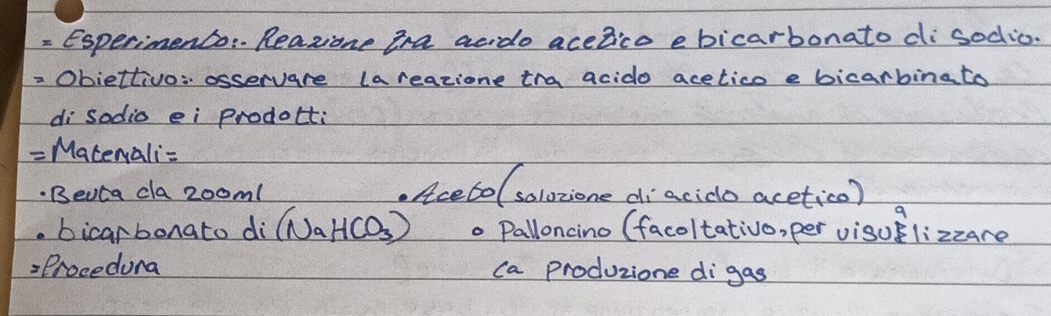 = Esperimento:- Reazione tra acido acetico e bicarbonato di sodio.
= Obiettivo:- osservare la reazione tra acido acetico e bicarbinato
di sodio e i prodotti
= Materiali =
• Beuta da 200ml • Aceto (soluzione di acido acetico)
• bicarbonato di (NaHCO₃) • Palloncino (facoltativo, per visualizzare
= Procedura la produzione di gas